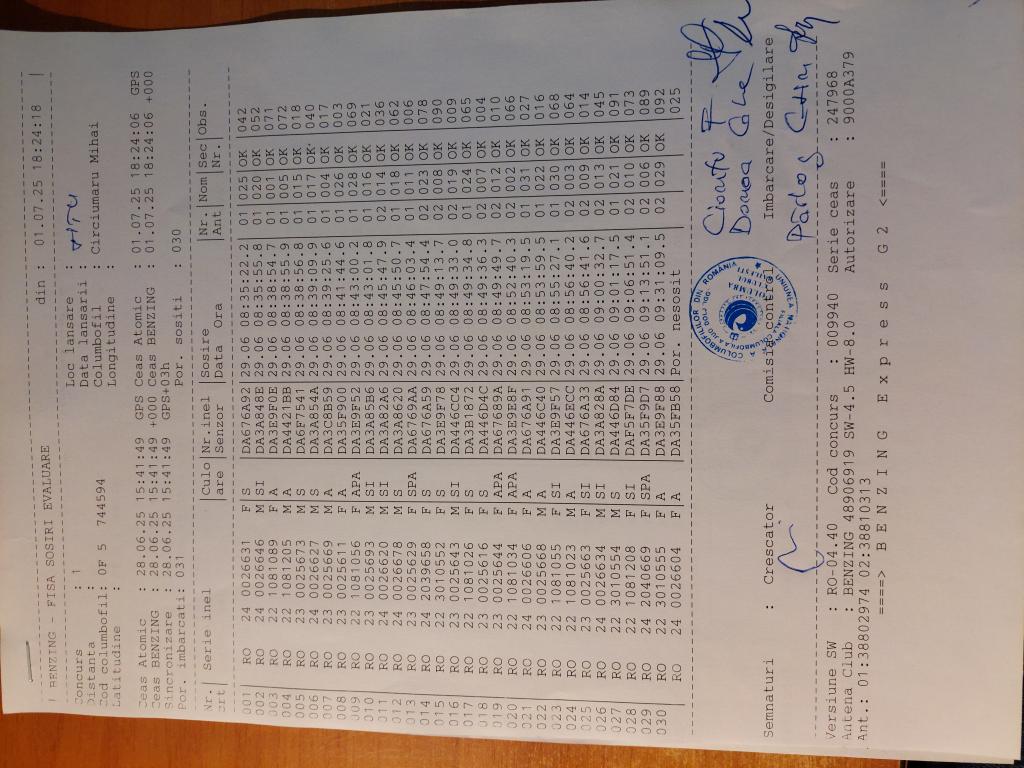 BENZING - FISA SOSIRI EVALUARE din : 01.07.25 18:24:18 |
Concurs : 1 Loc lansare : TITU
Distanta : Data lansarii :
Cod columbofil: 0F 5 744594 Columbofil : Circiumaru Mihai
Latitudine : Longitudine :
Ceas Atomic : 28.06.25 15:41:49 GPS Ceas Atomic : 01.07.25 18:24:06 GPS
Ceas BENZING : 28.06.25 15:41:49 +000 Ceas BENZING : 01.07.25 18:24:06 +000
Sincronizare : 28.06.25 15:41:49 GPS+03h
Por. imbarcati: 031 Por. sositi : 030
Nr. | Serie inel |Culo|Nr.inel |Sosire Nr.|Nom|Sec|Obs.
crt| |are |Senzor |Data Ora Ant| |Nr.|
001 RO 24 0026631 F S DA676A92 29.06 08:35:22.2 01 025 OK 042
002 RO 24 0026646 M SI DA3A848E 29.06 08:35:55.8 01 020 OK 052
003 RO 22 1081089 F A DA3E9F0E 29.06 08:38:54.7 01 001 OK 071
004 RO 22 1081205 M A DA4421BB 29.06 08:38:55.9 01 005 OK 072
005 RO 23 0025673 M S DA6F7541 29.06 08:38:56.8 01 015 OK 018
006 RO 24 0026627 M S DA3A854A 29.06 08:39:09.9 01 017 OK 040
007 RO 23 0025656 M A DA3C8B59 29.06 08:39:25.6 01 004 OK 017
008 RO 23 0025611 F A DA35F900 29.06 08:41:44.6 01 026 OK 003
009 RO 22 1081056 F APA DA3E9F52 29.06 08:43:00.2 01 028 OK 069
010 RO 23 0025693 M SI DA3A85B6 29.06 08:43:01.8 01 016 OK 021
011 RO 24 0026620 M SI DA3A82A6 29.06 08:45:47.9 02 014 OK 036
012 RO 24 0026678 M S DA3A8620 29.06 08:45:50.7 01 018 OK 062
013 RO 23 0025629 F SPA DA6769AA 29.06 08:46:03.4 01 011 OK 006
014 RO 24 2039658 F S DA676A59 29.06 08:47:54.4 02 023 OK 078
015 RO 22 3010552 F A DA3E9F78 29.06 08:49:13.7 02 008 OK 090
016 RO 23 0025643 M SI DA446CC4 29.06 08:49:33.0 02 019 OK 009
017 RO 22 1081026 F S DA3B1872 29.06 08:49:34.8 01 024 OK 065
018 RO 23 0025616 F S DA446D4C 29.06 08:49:36.3 02 007 OK 004
019 RO 23 0025644 F APA DA67689A 29.06 08:49:49.7 02 012 OK 010
020 RO 22 1081034 F APA DA3E9E8F 29.06 08:52:40.3 01 002 OK 066
021 RO 24 0026606 F A DA676A91 29.06 08:53:19.5 01 031 OK 027
022 RO 23 0025668 M A DA446C40 29.06 08:53:59.5 01 022 OK 016
023 RO 22 1081055 F SI DA3E9F57 29.06 08:55:27.1 01 030 OK 068
024 RO 22 1081023 M A DA446ECC 29.06 08:56:40.2 02 003 OK 064
025 RO 23 0025663 F SI DA676A33 29.06 08:56:41.6 02 009 OK 014
026 RO 24 0026634 M SI DA3A828A 29.06 09:00:32.7 02 013 OK 045
027 RO 22 3010554 M S DA446D84 29.06 09:01:17.5 01 021 OK 091
028 RO 22 1081208 F SI DAF5F7DE 29.06 09:06:51.4 02 010 OK 073
029 RO 24 2040669 F SPA DA35F9D7 29.06 09:13:51.1 02 006 OK 089
030 RO 22 3010555 F A DA3E9F88 29.06 09:31:09.5 02 029 OK 092
RO 24 0026604 F A DA35FB58 Por. nesosit 025
Semnaturi : Crescator Comisie control Imbarcare/Desigilare
Versiune SW : RO-04.40 Cod concurs : 009940 Serie ceas : 247968
Antena Club : BENZING 48906919 SW-4.5 HW-8.0 Autorizare : 9000A379
Ant.: 01:38802974 02:38810313
====> B E N Z I N G E x p r e s s G 2 <====